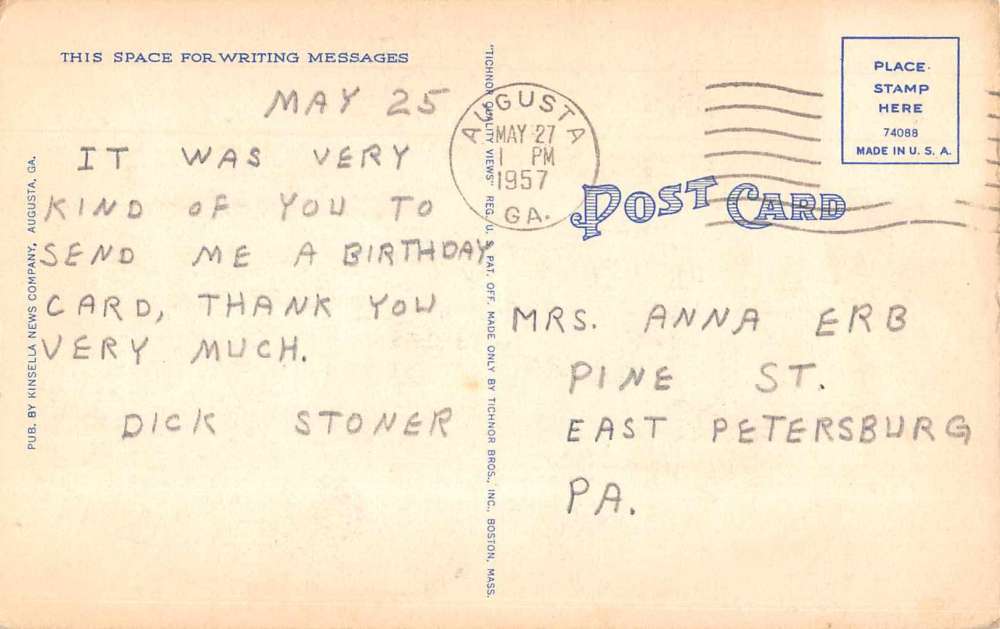 THIS SPACE FOR WRITING MESSAGES
MAY 25
IT WAS VERY
KIND OF YOU TO
SEND ME A BIRTHDAY
CARD, THANK YOU
VERY MUCH.
DICK STONER
PUB. BY KINSELLA NEWS COMPANY, AUGUSTA, GA.
"TICHNOR QUALITY VIEWS" REG. U. S. PAT. OFF. MADE ONLY BY TICHNOR BROS., INC., BOSTON, MASS.
AUGUSTA
MAY 27
1 PM
1957
GA.
PLACE
STAMP
HERE
74088
MADE IN U. S. A.
POST CARD
MRS. ANNA ERB
PINE ST.
EAST PETERSBURG
PA.